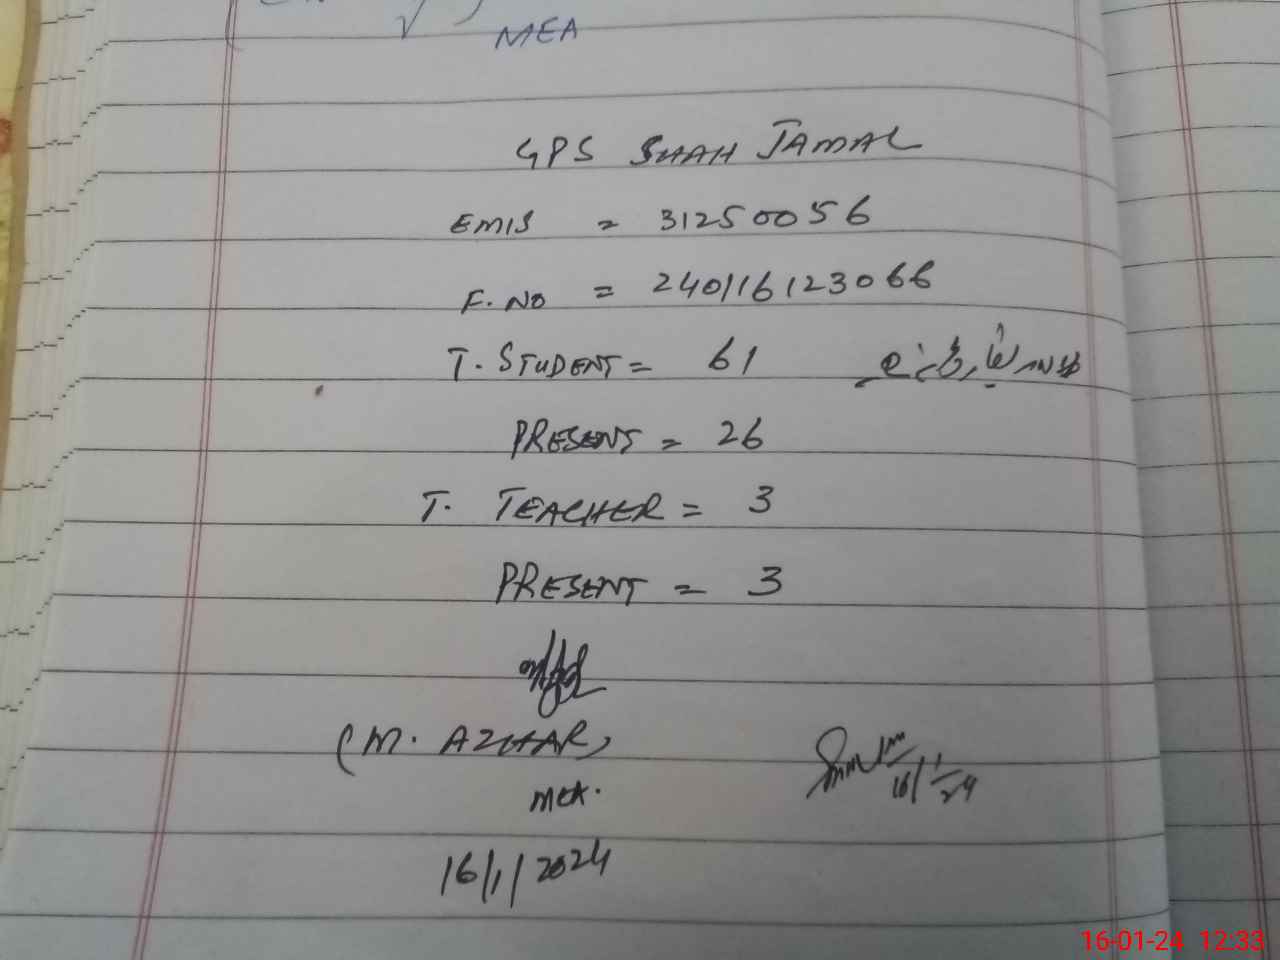 MEA
GPS SHAH JAMAL
EMIS = 31250056
F. NO = 240116123066
T. STUDENT = 61
PRESENT = 26
T. TEACHER = 3
PRESENT = 3
(M. AZHAR)
MEA.
16/1/24
16/1/2024
16-01-24 12:33